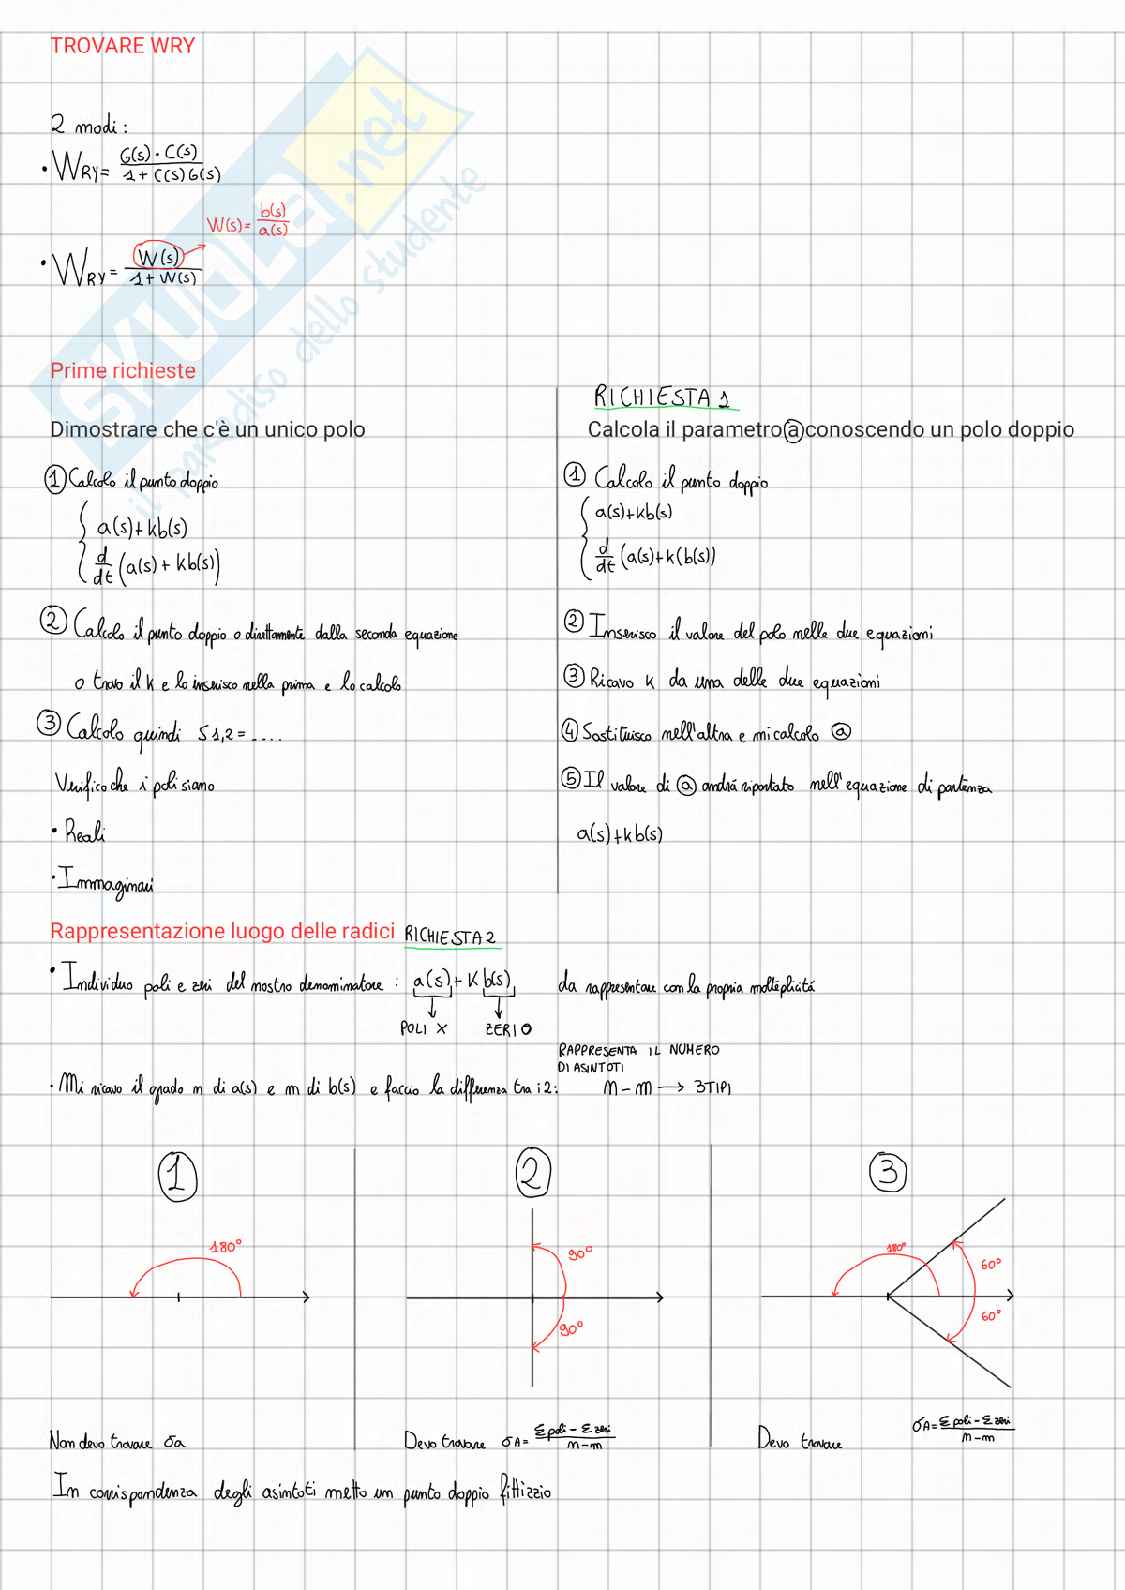 TROVARE WRY
2 modi:
• WRY= G(s)·C(s) / 1+C(s)G(s)
W(s)= b(s)/a(s)
• WRY= W(s) / 1+W(s)
SKUOLA.net
il paradiso dello studente
Prime richieste
Dimostrare che c'è un unico polo
① Calcolo il punto doppio
{ a(s)+kb(s)
d/dt (a(s)+kb(s))
② Calcolo il punto doppio o direttamente dalla seconda equazione
o trovo il k e lo inserisco nella prima e lo calcolo
③ Calcolo quindi S1,2=....
Verifico che i poli siano
• Reali
• Immaginari
RICHIESTA 1
Calcola il parametro ⓐ conoscendo un polo doppio
① Calcolo il punto doppio
{ a(s)+kb(s)
d/dt (a(s)+k(b(s))
② Inserisco il valore del polo nelle due equazioni
③ Ricavo k da una delle due equazioni
④ Sostituisco nell'altra e mi calcolo ⓐ
⑤ Il valore di ⓐ andrá riportato nell'equazione di partenza
a(s)+kb(s)
Rappresentazione luogo delle radici RICHIESTA 2
• Individuo poli e zeri del nostro denominatore: a(s)+Kb(s) da rappresentare con la propria molteplicitá
POLI X ZERI O
RAPPRESENTA IL NUMERO
DI ASINTOTI
• Mi ricavo il grado n di a(s) e m di b(s) e faccio la differenza tra i 2: n-m → 3 TIPI
① ② ③
180° 90° 90° 180° 60° 60°
Non devo trovare σa
Devo trovare σA= Σpoli-Σzeri / n-m
Devo trovare σA= Σpoli-Σzeri / n-m
In corrispondenza degli asintoti metto un punto doppio fittizzio